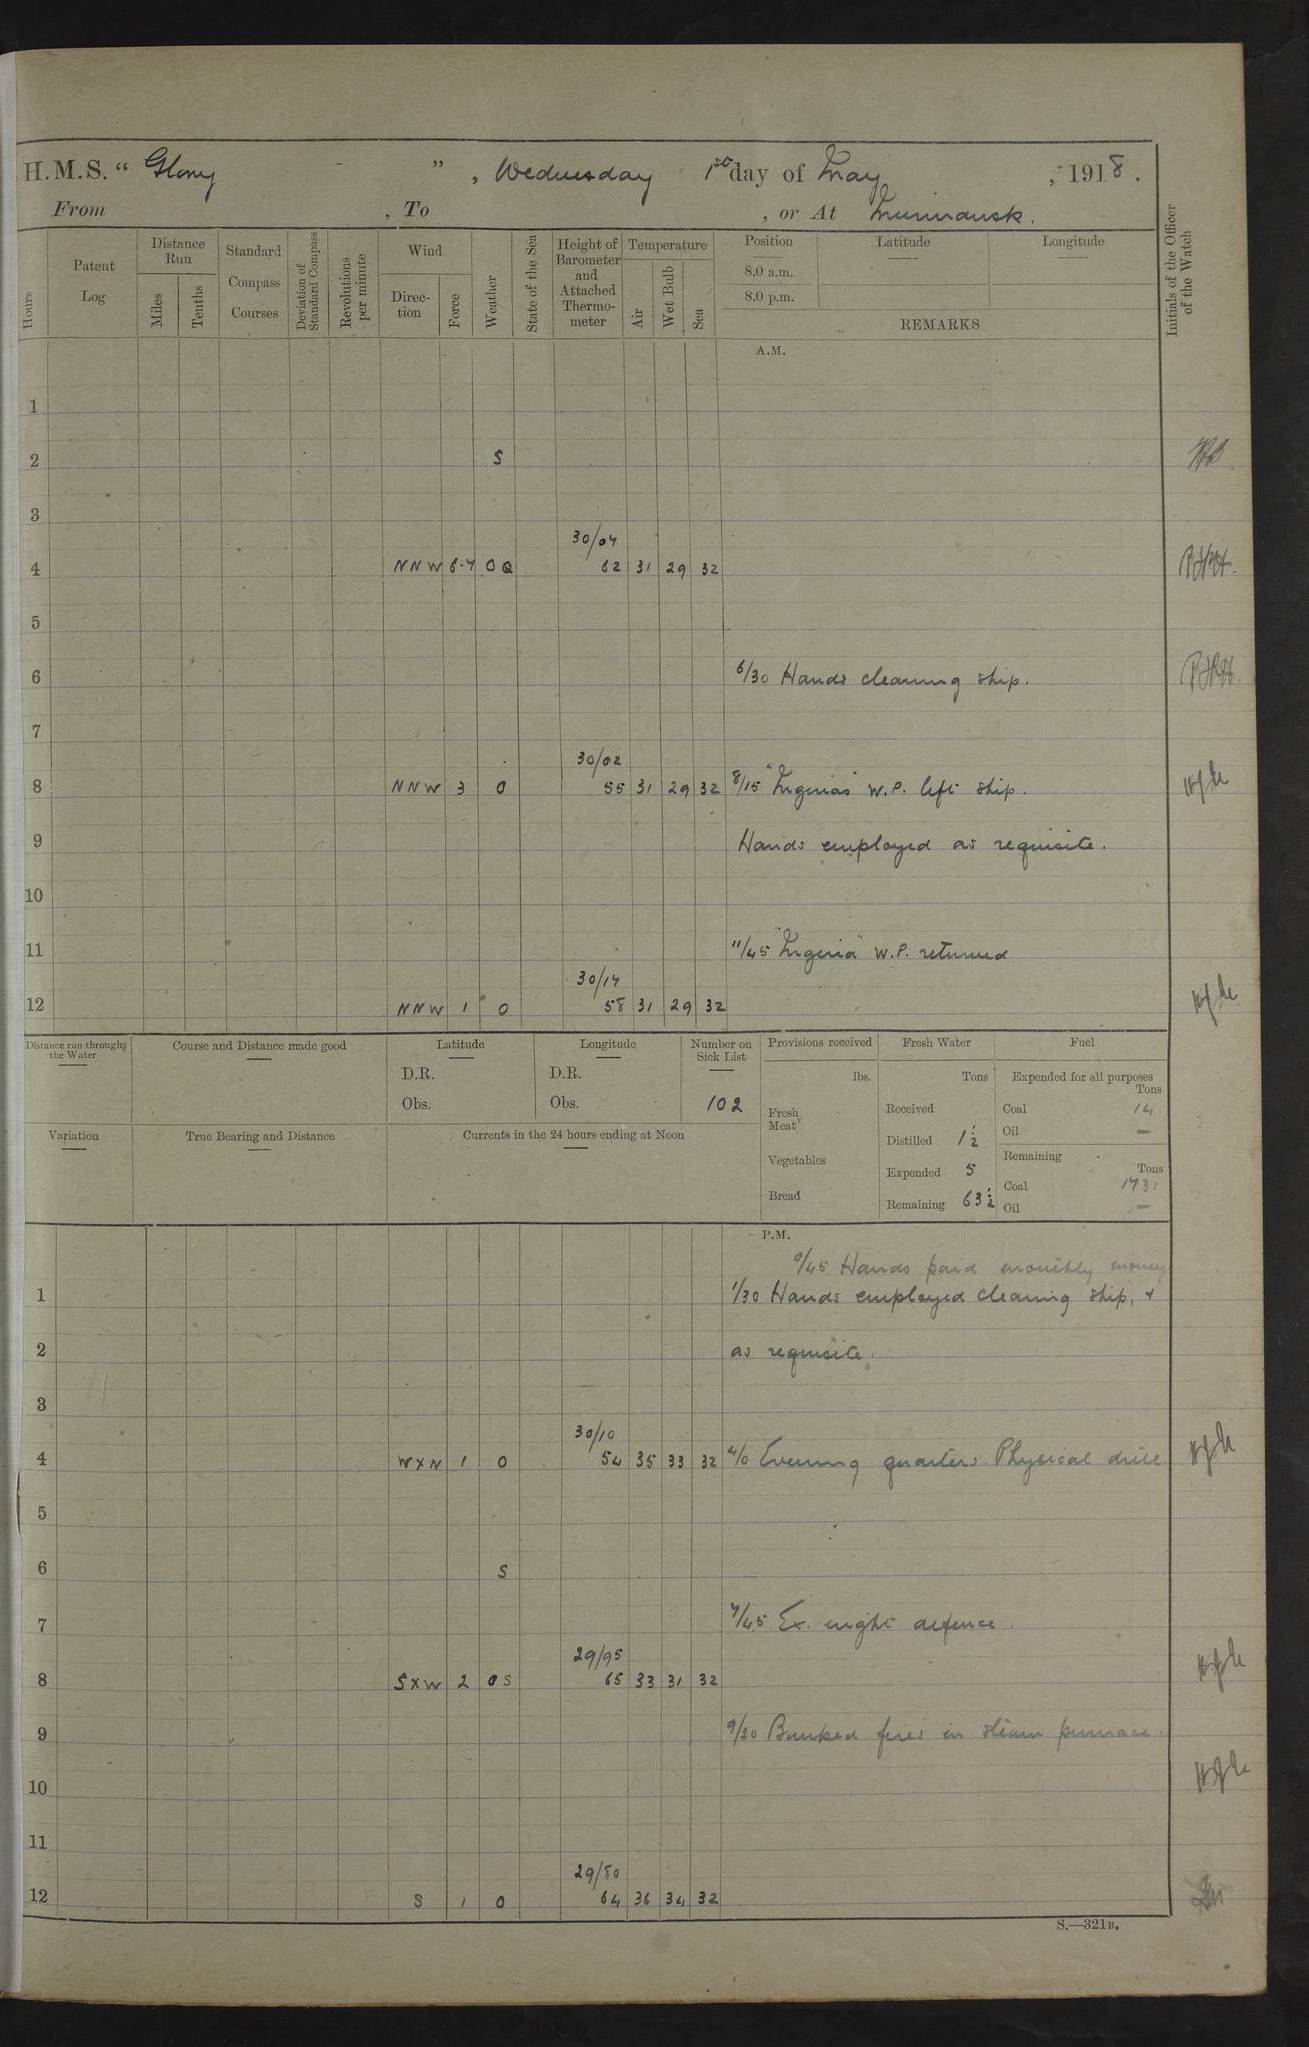 H.M.S. " Glory ", Wednesday 1st day of May, 1918.
From , To , or At Murmansk.
Hours
Patent Log
Distance Run
Miles
Tenths
Standard Compass Courses
Deviation of Standard Compass
Revolutions per minute
Wind
Direc-tion
Force
Weather
State of the Sea
Height of Barometer and Attached Thermo-meter
Temperature
Air
Wet Bulb
Sea
Position
8.0 a.m.
8.0 p.m.
Latitude
Longitude
REMARKS
Initials of the Officer of the Watch
A.M.
1
2 S
3
30/04
4 NNW 6.7 OQ 62 31 29 32
5
6 6/30 Hands cleaning ship.
7
30/02
8 NNW 3 O 55 31 29 32 8/15 W.P. left ship.
9 Hands employed as requisite.
10
11 11/45 W.P. returned
30/14
12 NNW 1 O 58 31 29 32
Distance run through the Water
Course and Distance made good
Latitude
D.R.
Obs.
Longitude
D.R.
Obs.
Number on Sick List
102
Provisions received
lbs.
Fresh Meat
Vegetables
Bread
Fresh Water
Tons
Received
Distilled 1½
Expended 5
Remaining 63½
Fuel
Expended for all purposes
Tons
Coal 14
Oil —
Remaining
Tons
Coal 1731
Oil —
Variation
True Bearing and Distance
Currents in the 24 hours ending at Noon
P.M.
0/45 Hands paid monthly money
1 1/30 Hands employed cleaning ship, &
2 as requisite.
3
30/10
4 WXN 1 O 54 35 33 32 4/0 Evening quarters. Physical drill
5
6 S
7 7/45 Ex. night defence.
29/95
8 SXW 2 OS 65 33 31 32
9 9/20 Banked fires in steam pinnace.
10
11
29/80
12 S 1 O 64 36 34 32
S.—321B.